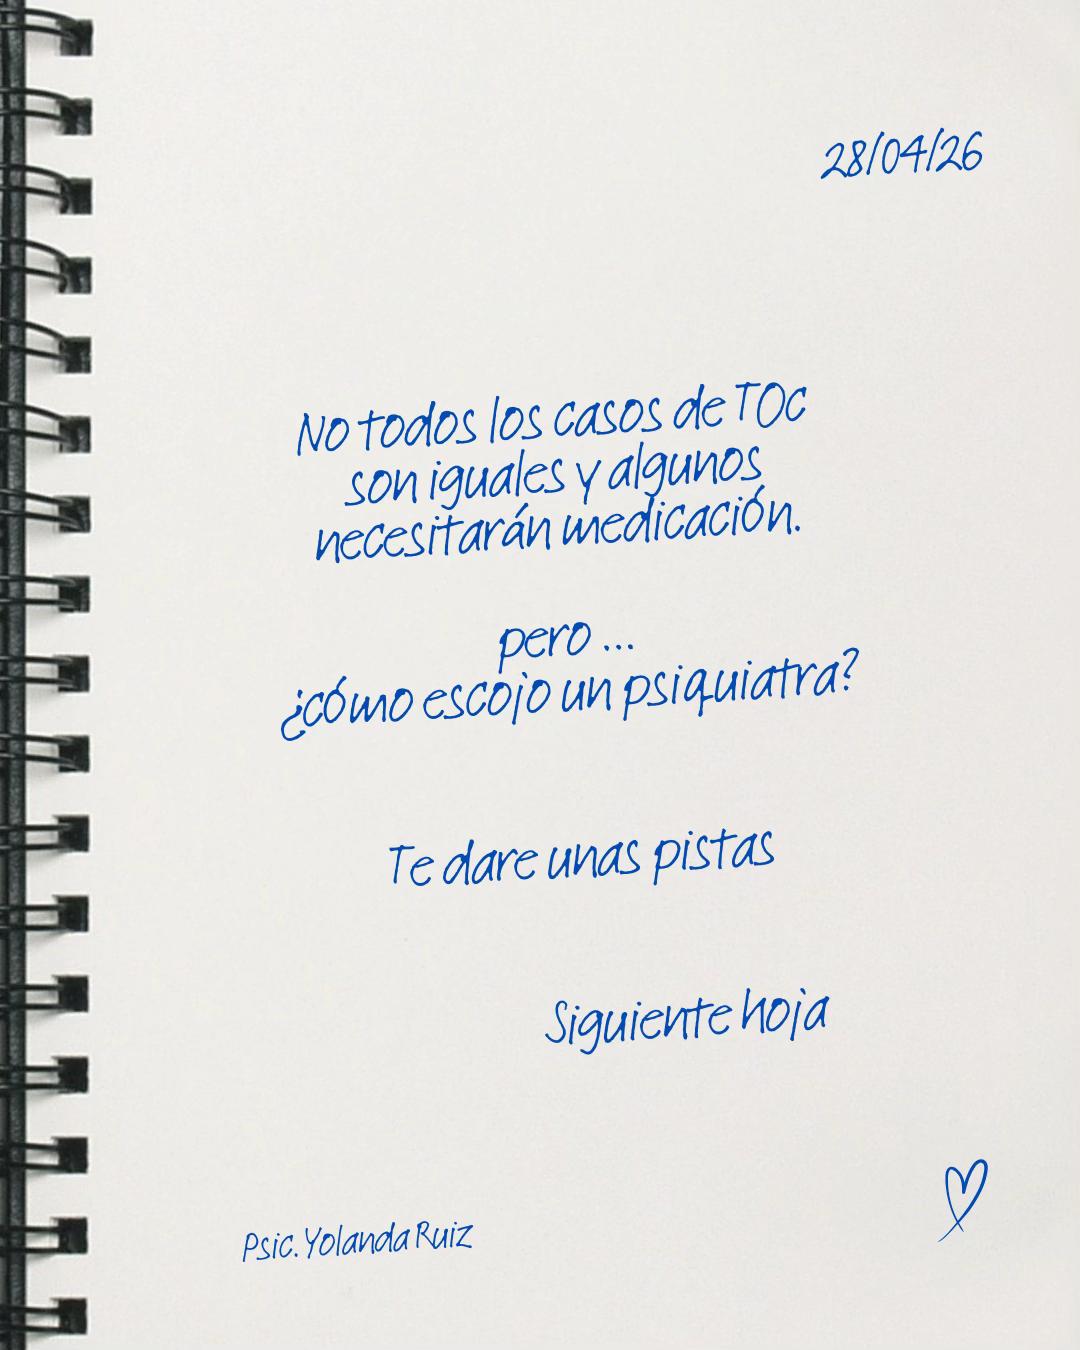 28/04/26
No todos los casos de TOC
son iguales y algunos
necesitarán medicación.
pero ...
¿cómo escojo un psiquiatra?
Te dare unas pistas
Siguiente hoja
Psic. Yolanda Ruiz